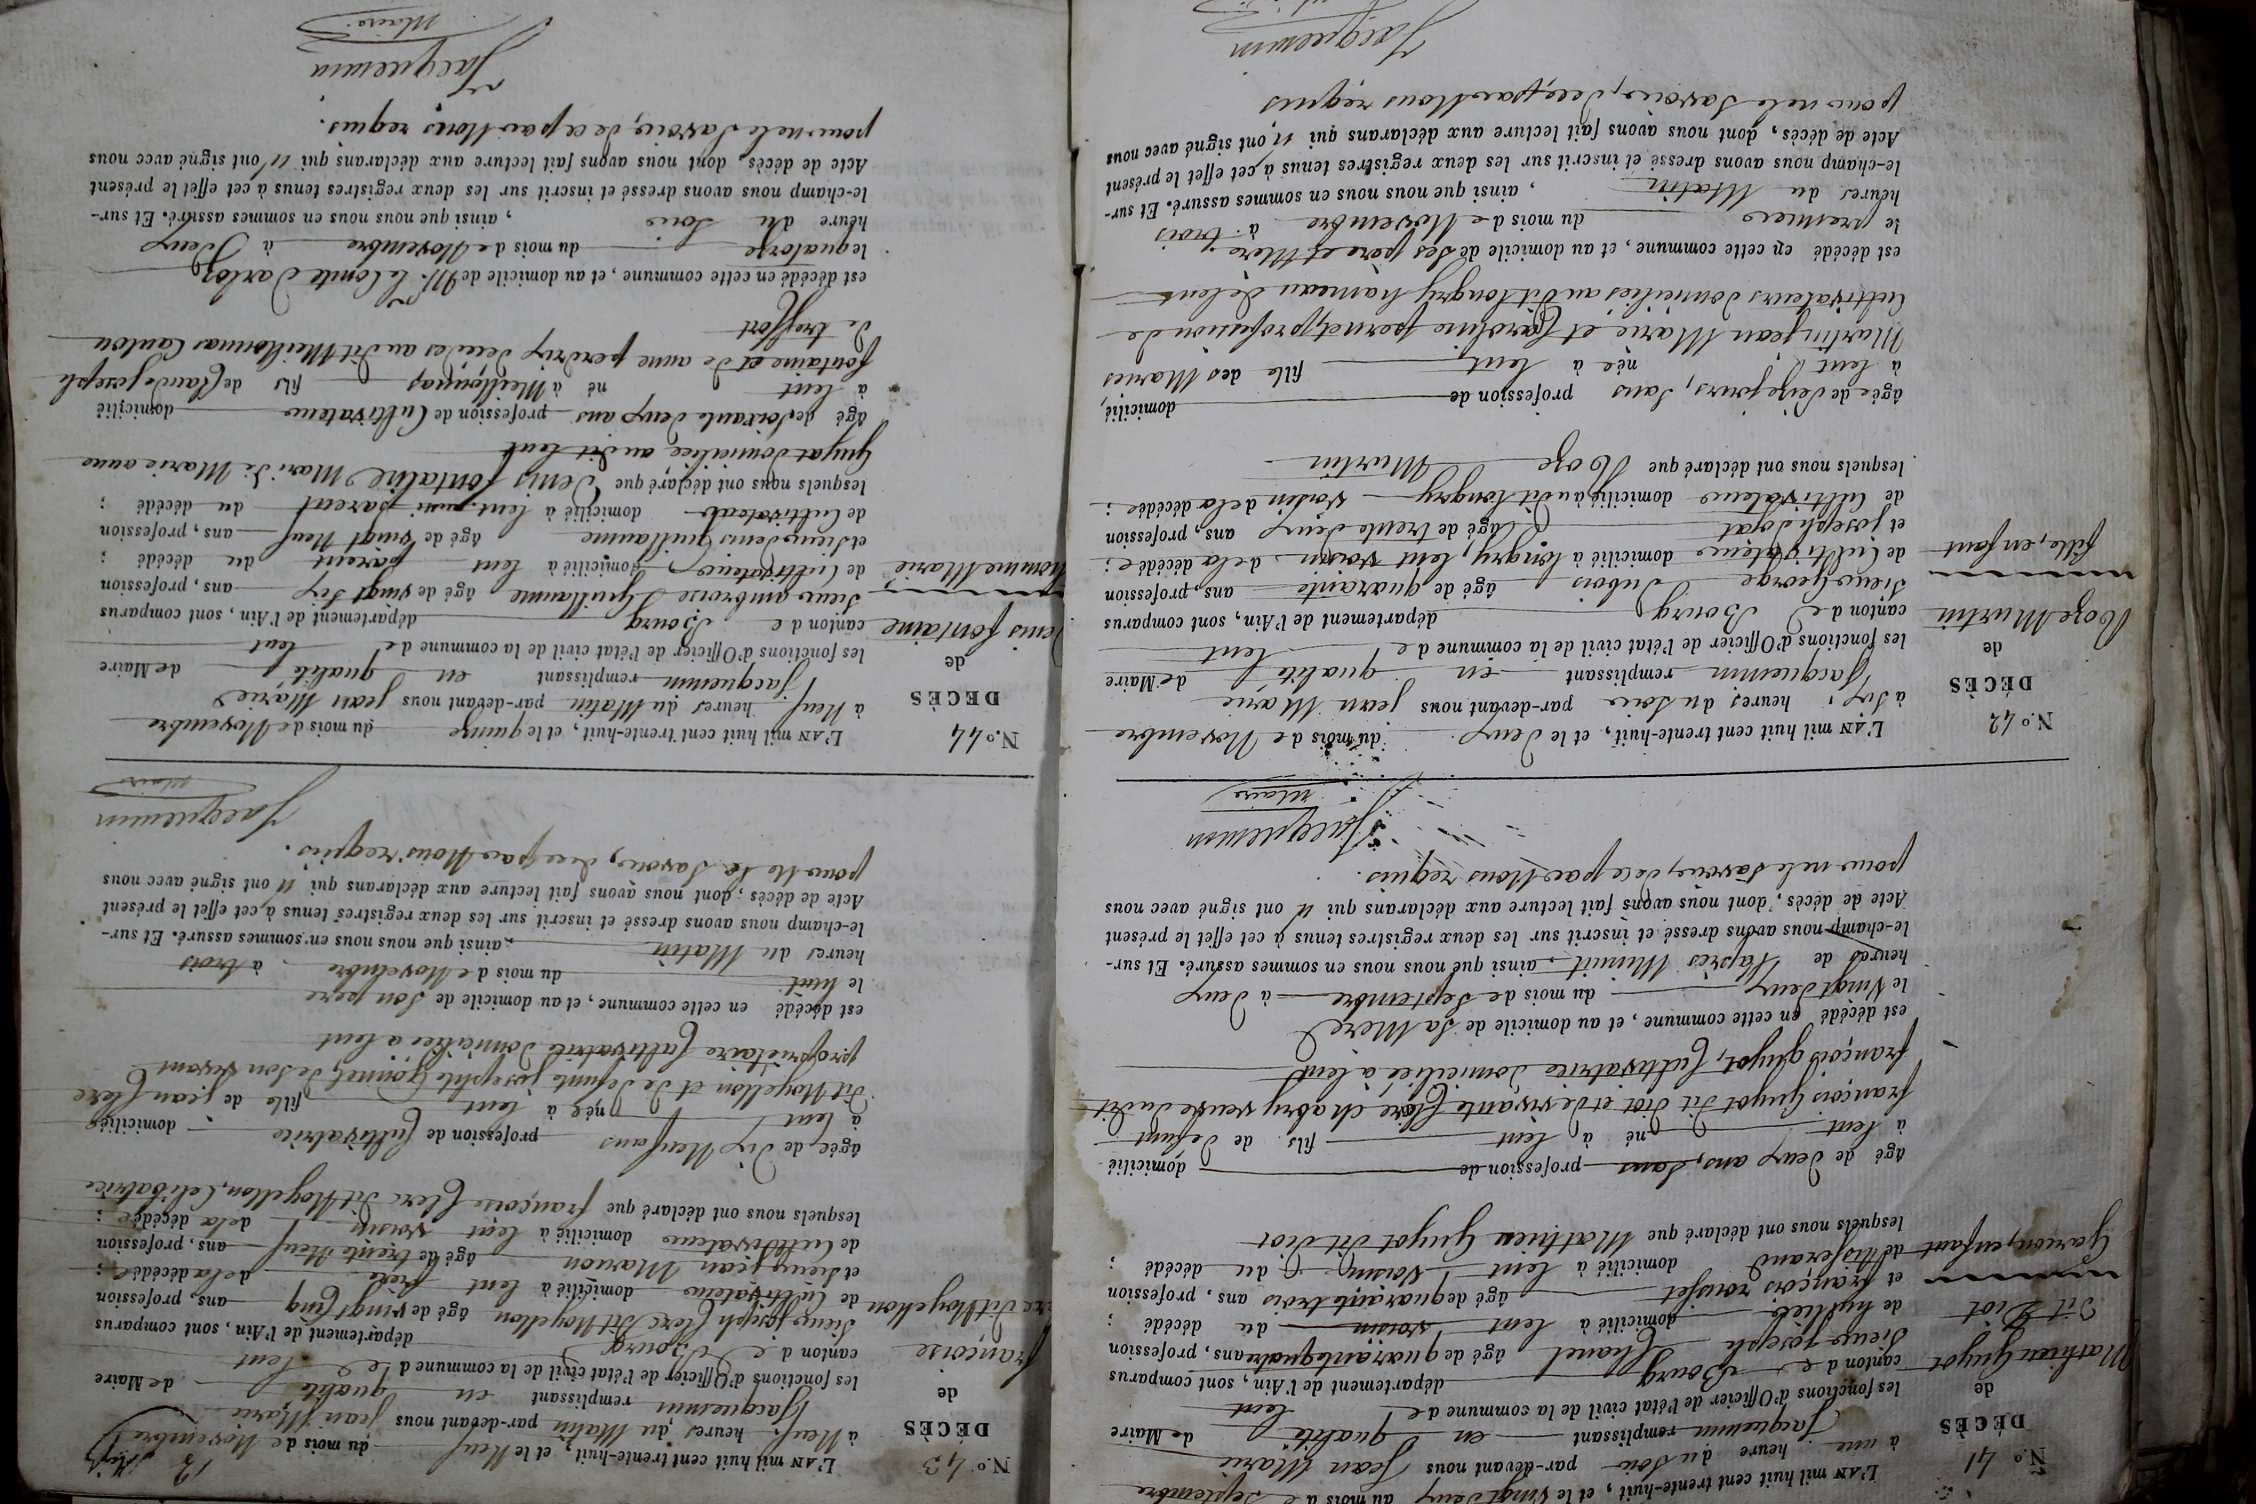 N.º 41
DÉCÈS
de
Mathieu Guyot
dit Diot
Garçon, enfant
L'AN mil huit cent trente-huit, et le vingt deux du mois de Septembre
à une heure du soir par-devant nous Jean Marie
Jacquemin remplissant en qualité de Maire
les fonctions d'Officier de l'état civil de la commune de Lent
canton de Bourg département de l'Ain, sont comparus
Sieur joseph Chanel âgé de quarante quatre ans, profession
de domicilié à Lent voisin du décédé ;
et françois âgé de quarante trois ans, profession
de domicilié à Lent voisin du décédé ;
lesquels nous ont déclaré que Mathieu Guyot dit Diot
âgé de deux ans, sans profession de domicilié
à Lent né à Lent fils de defunt
françois Guyot dit Diot et de vivante Claire Chabry veuve dudit
françois Guyot, Cultivatrice domiciliée à Lent
est décédé en cette commune, et au domicile de sa Mere
le vingt deux du mois de Septembre à deux
heures de l'après Minuit, ainsi que nous nous en sommes assuré. Et sur-
le-champ nous avons dressé et inscrit sur les deux registres tenus à cet effet le présent
Acte de décès, dont nous avons fait lecture aux déclarans qui n'ont signé avec nous
pour ne le savoir, de ce par Nous requis.
Jacquemin
Maire
N.º 42
DÉCÈS
de
Roze Murtin
fille, enfant
L'AN mil huit cent trente-huit, et le deux du mois de Novembre
à six heures du soir par-devant nous jean Marie
Jacquemin remplissant en qualité de Maire
les fonctions d'Officier de l'état civil de la commune de Lent
canton de Bourg département de l'Ain, sont comparus
Sieur George Dubois âgé de quarante ans, profession
de Cultivateur domicilié à Longry, Lent voisin de la décédée ;
et joseph âgé de trente deux ans, profession
de Cultivateur domicilié au dit Longry voisin de la décédée ;
lesquels nous ont déclaré que Roze Murtin
âgée de seize jours, sans profession de domicilié
à Lent née à Lent fille des Maries
Murtin jean Marie et Caroline pernet profession de
Cultivateurs domiciliés au dit Longry hameau de Lent
est décédé en cette commune, et au domicile de ses père et Mere
le premier du mois de Novembre à trois
heures du Matin, ainsi que nous nous en sommes assuré. Et sur-
le-champ nous avons dressé et inscrit sur les deux registres tenus à cet effet le présent
Acte de décès, dont nous avons fait lecture aux déclarans qui n'ont signé avec nous
pour ne le savoir, de ce par Nous requis
Jacquemin
N.º 43
DÉCÈS
de
françoise
dit Noyellon
L'AN mil huit cent trente-huit, et le Neuf du mois de Novembre
à Neuf heures du Matin par-devant nous jean Marie
Jacquemin remplissant en qualité de Maire
les fonctions d'Officier de l'état civil de la commune de Lent
canton de Bourg département de l'Ain, sont comparus
Sieur joseph Clerc dit Noyellon âgé de vingt Cinq ans, profession
de Cultivateur domicilié à Lent frère de la décédée ;
et Sieur jean Marion âgé de trente Neuf ans, profession
de Cultivateur domicilié à Lent voisin de la décédée ;
lesquels nous ont déclaré que françoise Clerc dit Noyellon, Celibatrice
âgée de dix Neuf ans profession de Cultivatrice domiciliée
à Lent née à Lent fille de jean Clerc
dit Noyellon et de defunte josephte Gonnet de son vivant
propriétaire Cultivatrice domiciliée à Lent
est décédé en cette commune, et au domicile de son pere
le huit du mois de Novembre à trois
heures du Matin, ainsi que nous nous en sommes assuré. Et sur-
le-champ nous avons dressé et inscrit sur les deux registres tenus à cet effet le présent
Acte de décès, dont nous avons fait lecture aux déclarans qui n'ont signé avec nous
pour ne le savoir, de ce par Nous requis.
Jacquemin
Maire
N.º 44
DÉCÈS
de
Denis fontaine
homme Marié
L'AN mil huit cent trente-huit, et le quinze du mois de Novembre
à Neuf heures du Matin par-devant nous jean Marie
Jacquemin remplissant en qualité de Maire
les fonctions d'Officier de l'état civil de la commune de Lent
canton de Bourg département de l'Ain, sont comparus
Sieur ambroise Guillaume âgé de vingt six ans, profession
de Cultivateur domicilié à Lent parent du décédé ;
et Sieur Denis Guillaume âgé de vingt Neuf ans, profession
de Cultivateur domicilié à Lent aussi parent du décédé ;
lesquels nous ont déclaré que Denis fontaine Mari de Marie anne
Guyat domiciliée au dit Lent
âgé de soixante deux ans profession de Cultivateur domicilié
à Lent né à Meillonnas fils de Claude joseph
fontaine et de anne perdrix decedes au dit Meillonnas Canton
de treffort
est décédé en cette commune, et au domicile de Mr. le Comte Darloz
le quatorze du mois de Novembre à Deux
heure du Soir, ainsi que nous nous en sommes assuré. Et sur-
le-champ nous avons dressé et inscrit sur les deux registres tenus à cet effet le présent
Acte de décès, dont nous avons fait lecture aux déclarans qui n'ont signé avec nous
pour ne le savoir, de ce par Nous requis.
Jacquemin
Maire